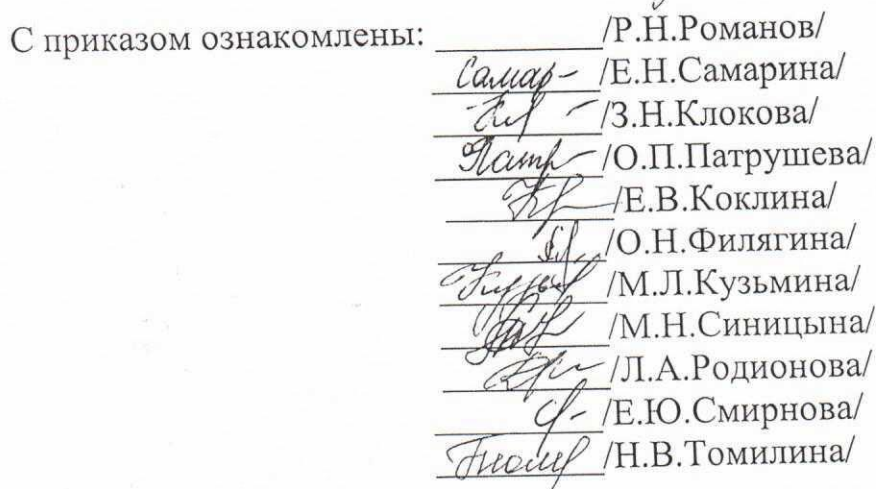 С приказом ознакомлены: /Р.Н.Романов/
Самар /Е.Н.Самарина/
/З.Н.Клокова/
/О.П.Патрушева/
/Е.В.Коклина/
/О.Н.Филягина/
/М.Л.Кузьмина/
/М.Н.Синицына/
/Л.А.Родионова/
/Е.Ю.Смирнова/
/Н.В.Томилина/